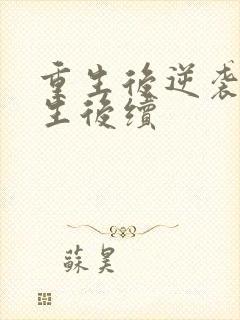 重生後逆袭
生後續
蘇昊